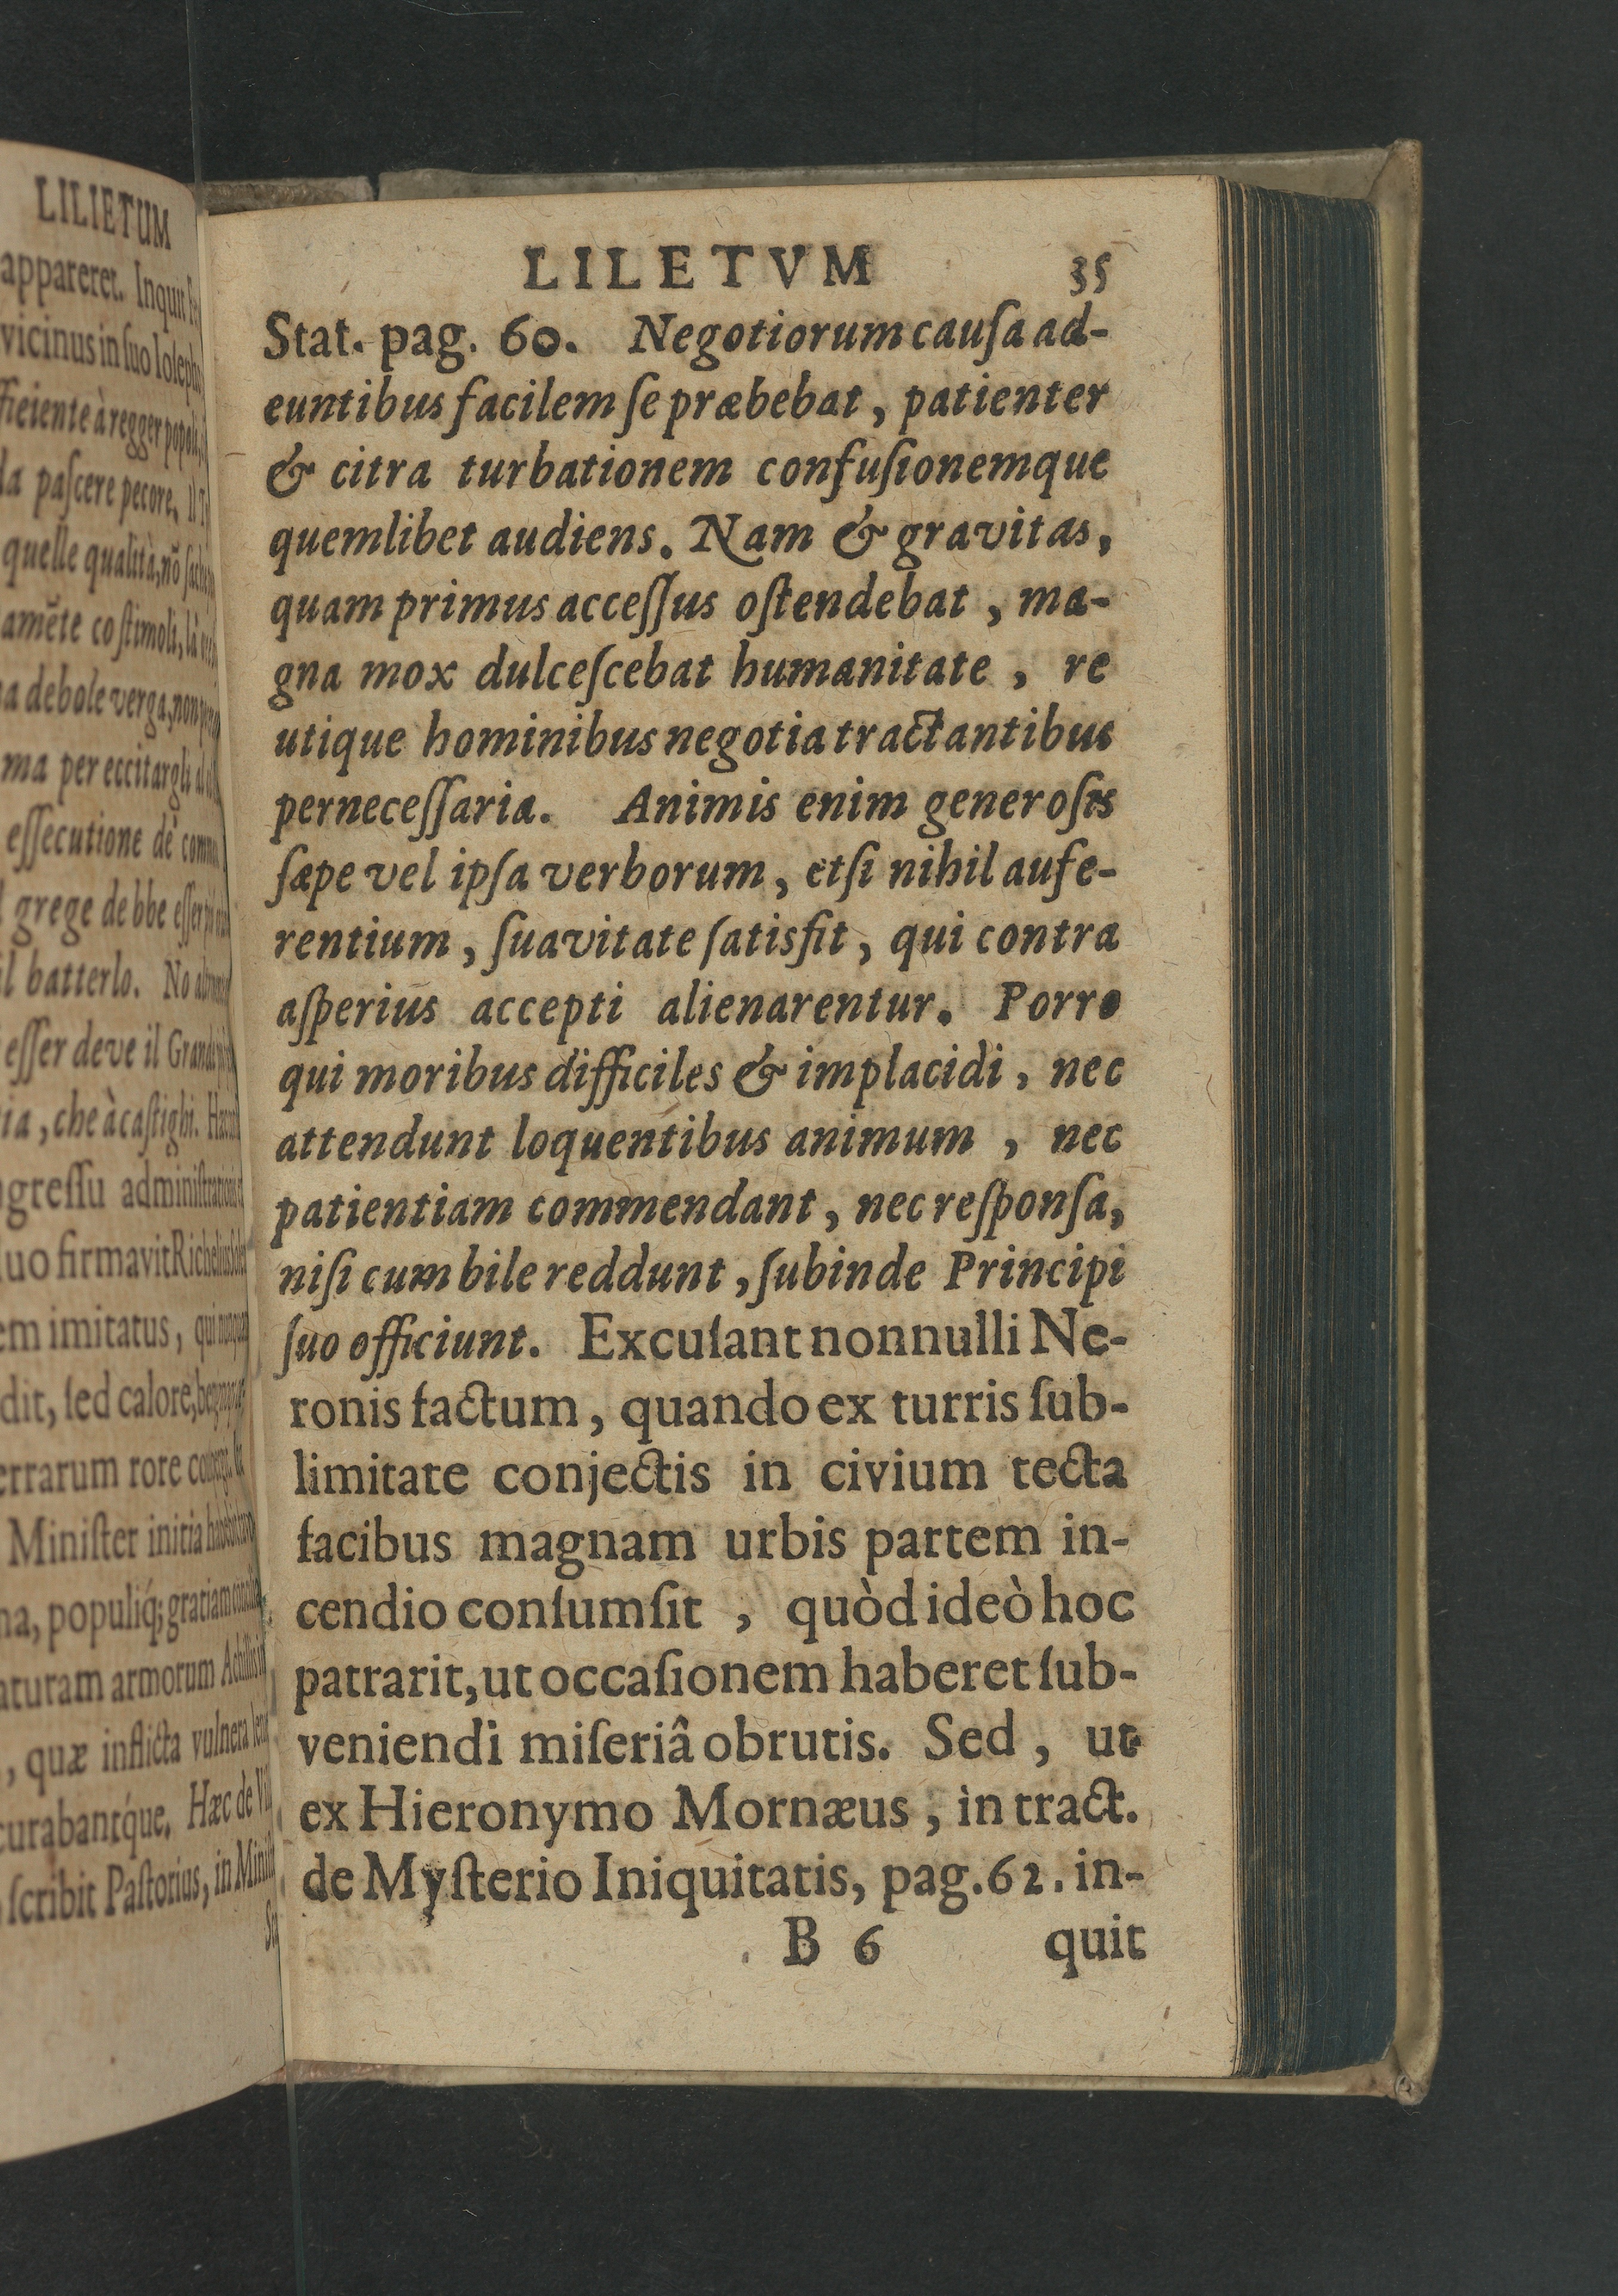 LILIETUM
appareret. Inquit
vicinus in ſuo Ioſeph
ficiente à regger popoli,
la paſcere pecore. Il
quelle qualità, nõ
amẽte co ſtimoli, là
a debole verga, non
ma per eccitargli
eſſecutione de
grege debbe eſſer
il batterlo. No
eſſer deve il
ia, che à caſtighi.
greſſu
uo firmavit
em imitatus,
dit, ſed calore,
errarum rore
Miniſter initia
na, populiq́;
aturam armorum
, quæ inflicta vulnera
curabantq́ue. Hæc de
ſcribit Paſtorius, in
LILETVM 35
Stat. pag. 60. Negotiorum cauſa ad-
euntibus facilem ſe præbebat, patienter
& citra turbationem confuſionemque
quemlibet audiens. Nam & gravitas,
quam primus acceſſus oſtendebat, ma-
gna mox dulceſcebat humanitate, re
utique hominibus negotia tractantibus
perneceſſaria. Animis enim generoſis
ſæpe vel ipſa verborum, etſi nihil aufe-
rentium, ſuavitate ſatisfit, qui contra
aſperius accepti alienarentur. Porro
qui moribus difficiles & implacidi, nec
attendunt loquentibus animum, nec
patientiam commendant, nec reſponſa,
niſi cum bile reddunt, ſubinde Principi
ſuo officiunt. Excuſant nonnulli Ne-
ronis factum, quando ex turris ſub-
limitate conjectis in civium tecta
facibus magnam urbis partem in-
cendio conſumſit, quòd ideò hoc
patrarit, ut occaſionem haberet ſub-
veniendi miſeriâ obrutis. Sed, ut
ex Hieronymo Mornæus, in tract.
de Myſterio Iniquitatis, pag. 62. in-
B 6 quit